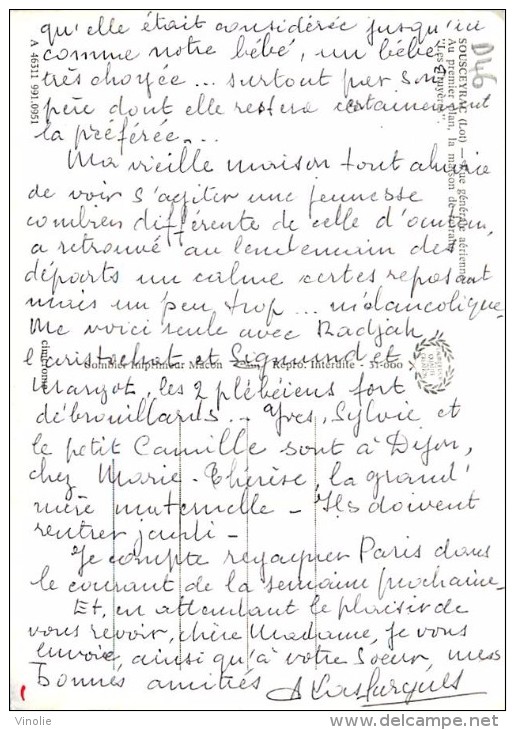 qu'elle était considérée jusqu'ici
comme notre bébé, un bébé
très choyée... surtout par son
père dont elle restera certainement
la préférée...
Ma vieille maison tout ahurie
de voir s'agiter une jeunesse
combien différente de celle d'antan,
a retrouvé au lendemain des
départs un calme certes reposant
mais un peu trop... mélancolique
Me voici seule avec Radjah,
l'aristochat et Sigmund et
Margot, les 2 plébéiens fort
débrouillards... Yves, Sylvie et
le petit Camille sont à Dijon,
chez Marie-Thérèse, la grand'
mère maternelle - Ils doivent
rentrer jeudi -
Je compte regagner Paris dans
le courant de la semaine prochaine -
Et, en attendant le plaisir de
vous revoir, chère Madame, je vous
envoie, ainsi qu'à votre Soeur, mes
bonnes amitiés
A 46311 991.0951
D46
SOUSCEYRAC (Lot) - Vue générale aérienne
Au premier plan, la maison de retraite
"Les Bruyères".
Combier Imprimeur Macon
Repro. Interdite - 31-000
Vinolie
www.delcampe.net